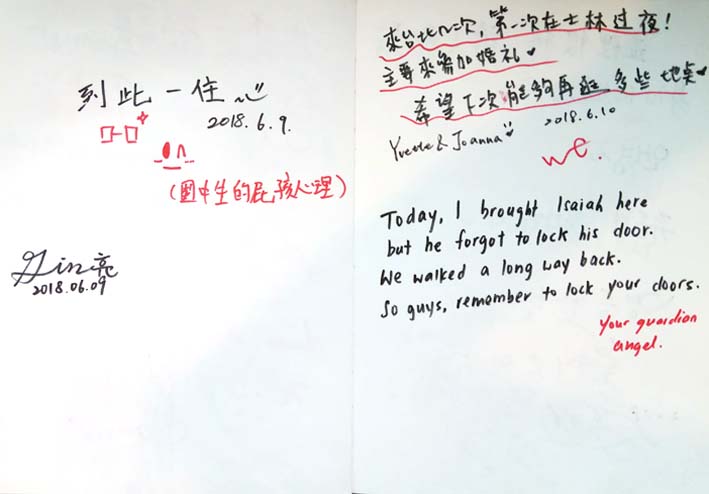 刻此一住
2018.6.9.
(國中生的屁孩心理)
Gin亮
2018.06.09
來台北n次,第一次在士林过夜!
主要來參加婚礼
希望下次能夠再逛多些地点
Yvette & Joanna
2018.6.10
we.
Today, I brought Isaiah here
but he forgot to lock his door.
We walked a long way back.
So guys, remember to lock your doors.
Your guardian
angel.